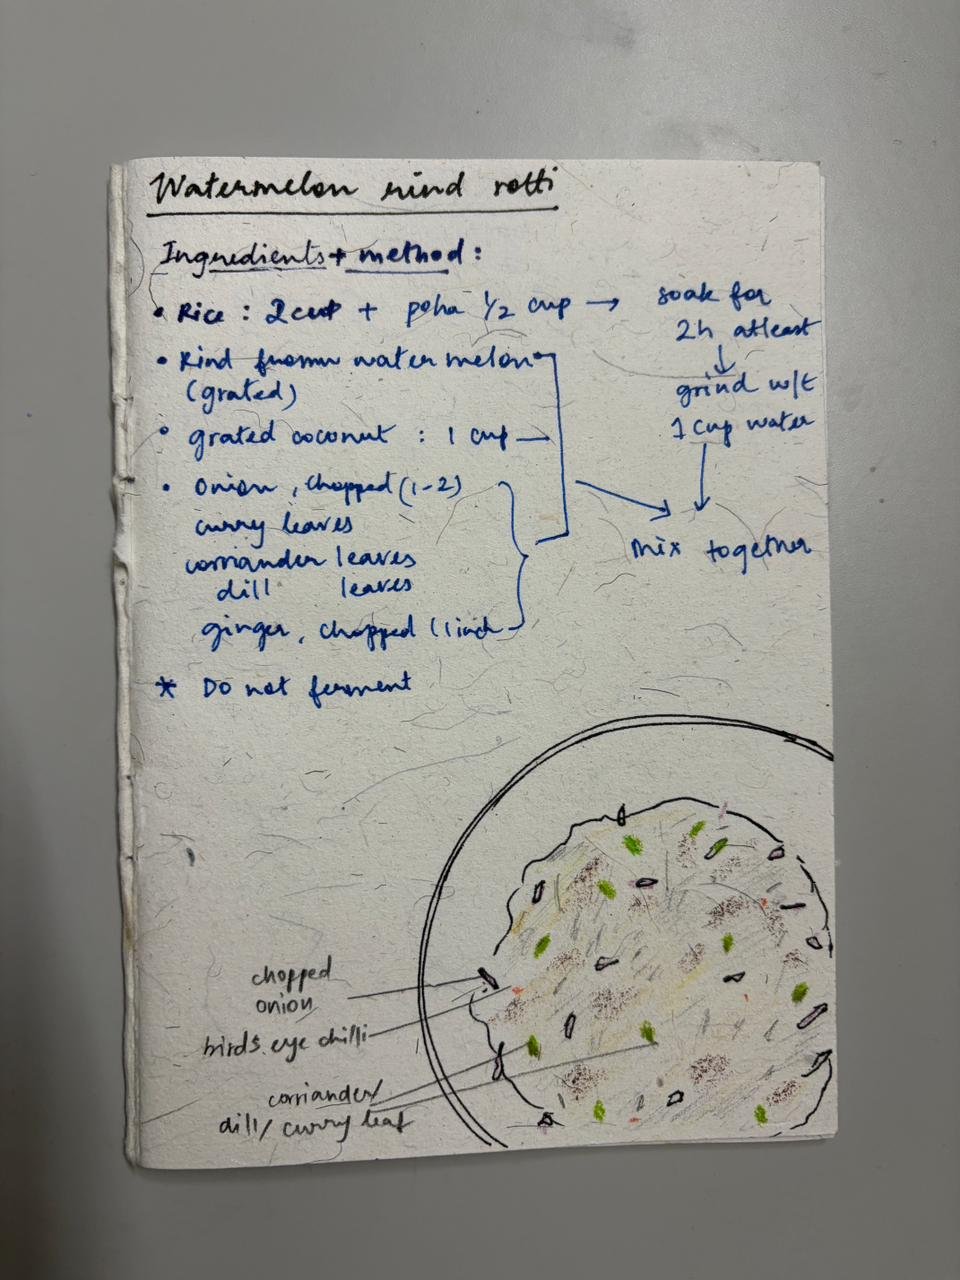 Watermelon rind rotti
Ingredients + method :
• Rice : 2 cup + poha 1/2 cup → soak for
2h atleast
↓
grind w/t
1 cup water
• Rind from water melon
(grated)
• grated coconut : 1 cup
• Onion, chopped (1-2)
curry leaves
corriander leaves
dill leaves
ginger, chopped (1 inch
mix together
* Do not ferment
chopped
onion
birds eye chilli
corriander/
dill/ curry leaf